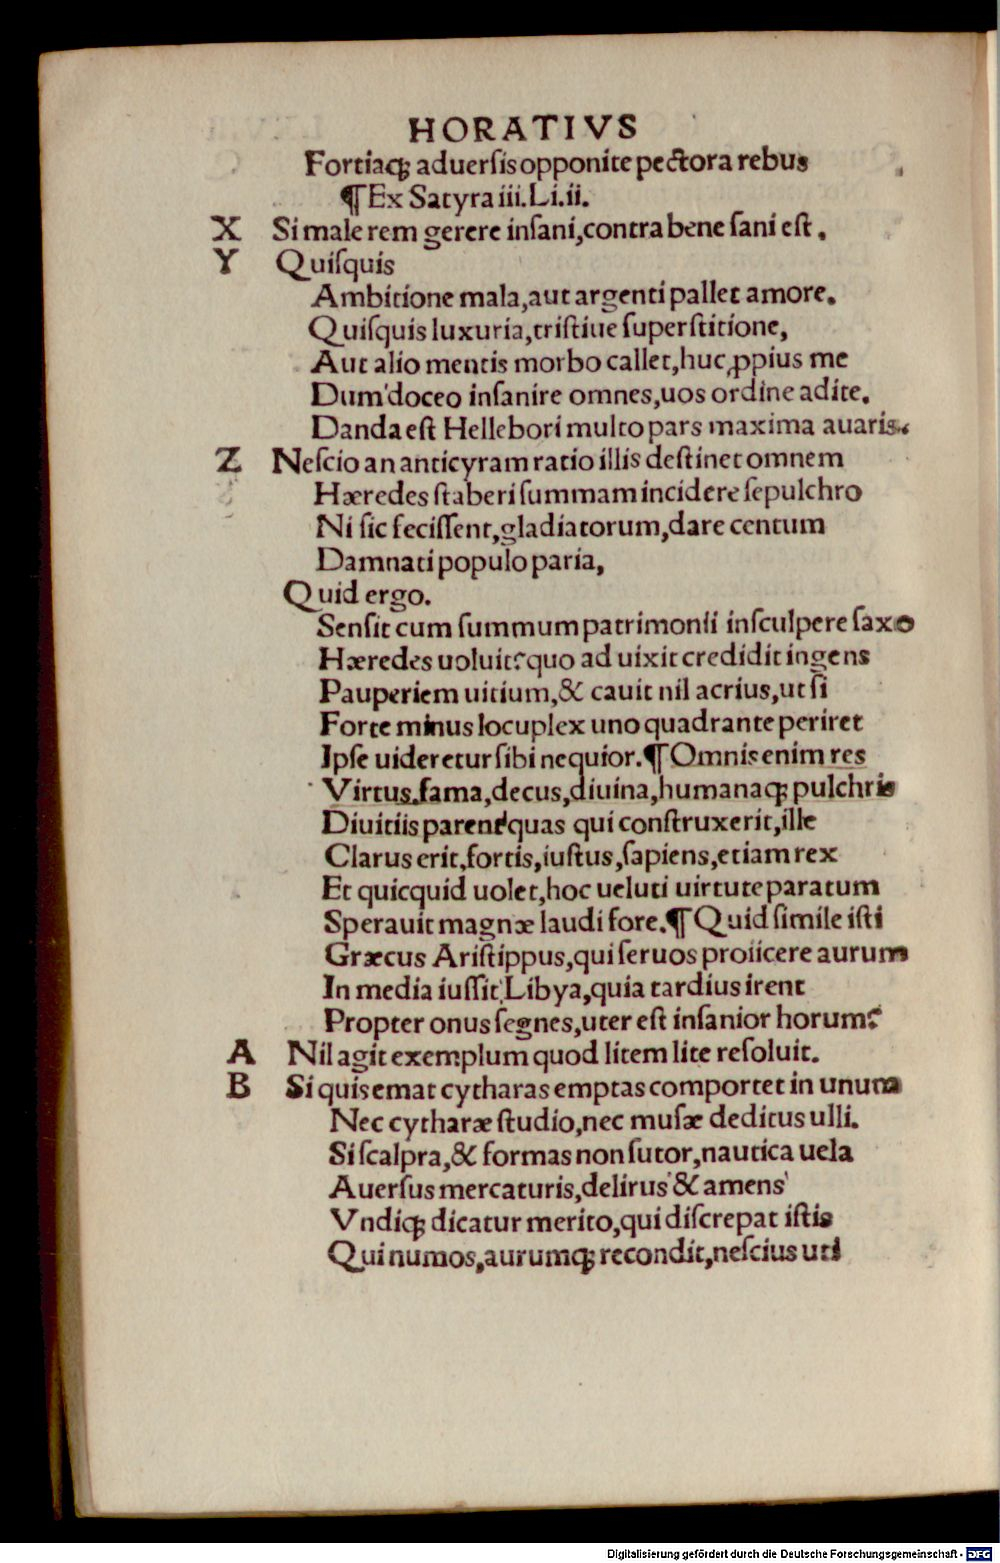 HORATIVS
Fortiaqꝫ aduerſis opponite pectora rebus
¶ Ex Satyra iii. Li. ii.
X Si male rem gerere inſani, contra bene ſani eſt.
Y Quiſquis
Ambitione mala, aut argenti pallet amore.
Quiſquis luxuria, triſtiue ſuperſtitione,
Aut alio mentis morbo callet, huc ꝓpius me
Dum doceo inſanire omnes, uos ordine adite.
Danda eſt Hellebori multo pars maxima auaris.
Z Neſcio an anticyram ratio illis deſtinet omnem
Hæredes ſtaberi ſummam incidere ſepulchro
Ni ſic feciſſent, gladiatorum, dare centum
Damnati populo paria,
Quid ergo.
Senſit cum ſummum patrimonii inſculpere ſaxo
Hæredes uoluit? quo ad uixit credidit ingens
Pauperiem uitium, & cauit nil acrius, ut ſi
Forte minus locuplex uno quadrante periret
Ipſe uideretur ſibi nequior. ¶ Omnis enim res
Virtus. fama, decus, diuina, humanaqꝫ pulchris
Diuitiis parent quas qui conſtruxerit, ille
Clarus erit, fortis, iuſtus, ſapiens, etiam rex
Et quicquid uolet, hoc ueluti uirtute paratum
Sperauit magnæ laudi fore. ¶ Quid ſimile iſti
Græcus Ariſtippus, qui ſeruos proiicere aurum
In media iuſſit Libya, quia tardius irent
Propter onus ſegnes, uter eſt inſanior horum?
A Nil agit exemplum quod litem lite reſoluit.
B Si quis emat cytharas emptas comportet in unum
Nec cytharæ ſtudio, nec muſæ deditus ulli.
Si ſcalpra, & formas non ſutor, nautica uela
Auerſus mercaturis, delirus & amens
Vndiqꝫ dicatur merito, qui diſcrepat iſtis
Qui numos, aurumqꝫ recondit, neſcius uti
Digitalisierung gefördert durch die Deutsche Forschungsgemeinschaft - DFG